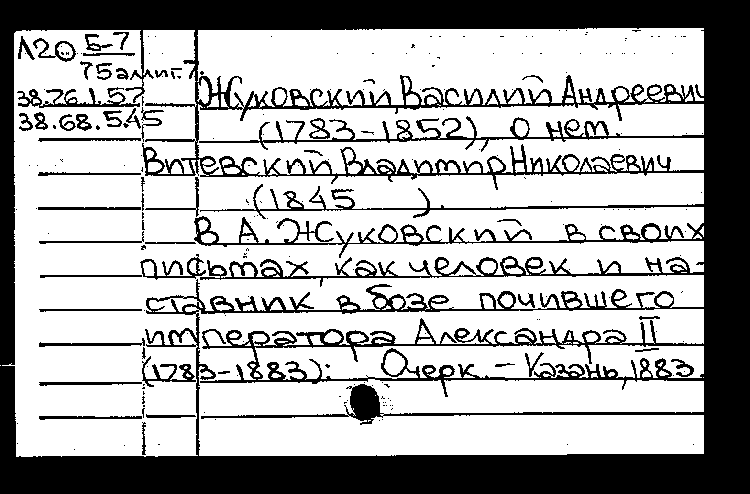 Л20 Б-7
75 аллиг.7
38.76.1.57
38.68.5.45
Жуковский, Василий Андреевич
(1783-1852), о нем.
Витевский, Владимир Николаевич
(1845 ).
В. А. Жуковский в своих
письмах, как человек и на-
ставник в бозе почившего
императора Александра II
(1783-1883): Очерк. - Казань, 1883.